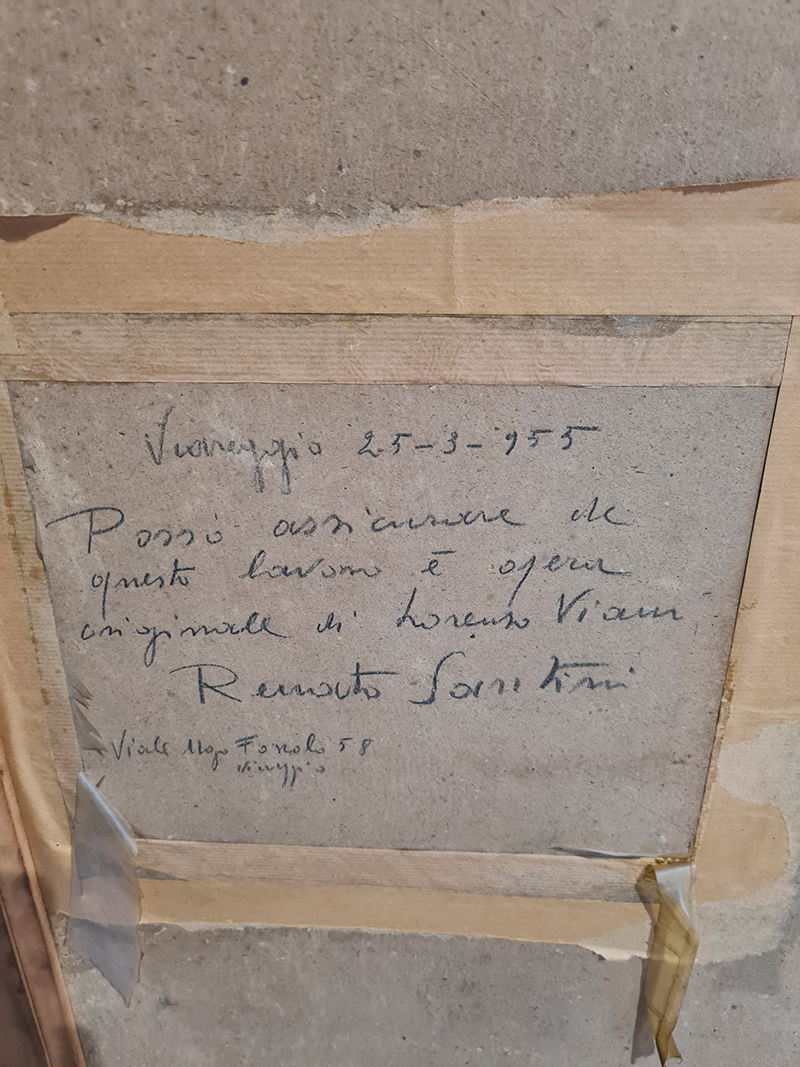 Viareggio 25-3-955
Posso assicurare che
questo lavoro è opera
originale di Lorenzo Viani
Renato Santini
Viale Ugo Foscolo 58
Viareggio